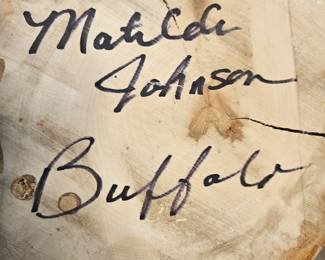 Matilde
Johnson
Buffalo